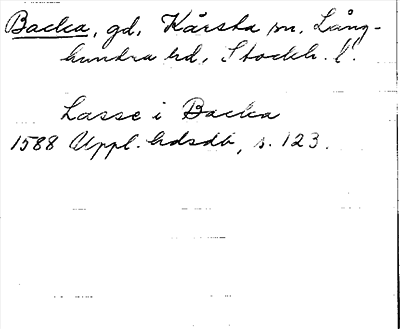 Backa, gd, Kårsta sn. Lång-
hundra hd, Stockh. l.
Lasse i Backa
1588 Uppl. hdsdb, s. 123.